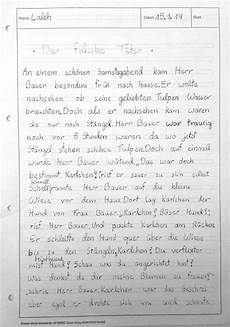 Name: Laleh Datum: 15.1.14
Der falsche Täter
An einem schönen Samstagabend kam Herr
Bauer besonders früh nach Hause. Er wollte
nachsehen ob seine geliebten Tulpen Wasser
brauchten. Doch als er nachsehen kam waren
da nur noch Stängel. Herr Bauer war traurig
noch vor 8 Stunden waren da wo jetzt
Stängel stehen schöne Tulpen. Doch auf einmal
wurde Herr Bauer wütend „Das war doch
bestimmt Karlchen! rief er zu sich selbst
Schnell rannte Herr Bauer auf die kleine
Wiese vor dem Haus. Dort lag Karlchen der
Hund von Frau Bauer „Karlchen! Böser Hund!"
rief Herr Bauer. Und packte Karlchen am Rücken
Er schleifte den Hund quer über die Wiese
bis zu den Stängeln „Karlchen! Du verflixter
Hund! Schau was du angerichtet hast!
Was denkst du dir meine Blumen zu
aber egal er drehte sich um und